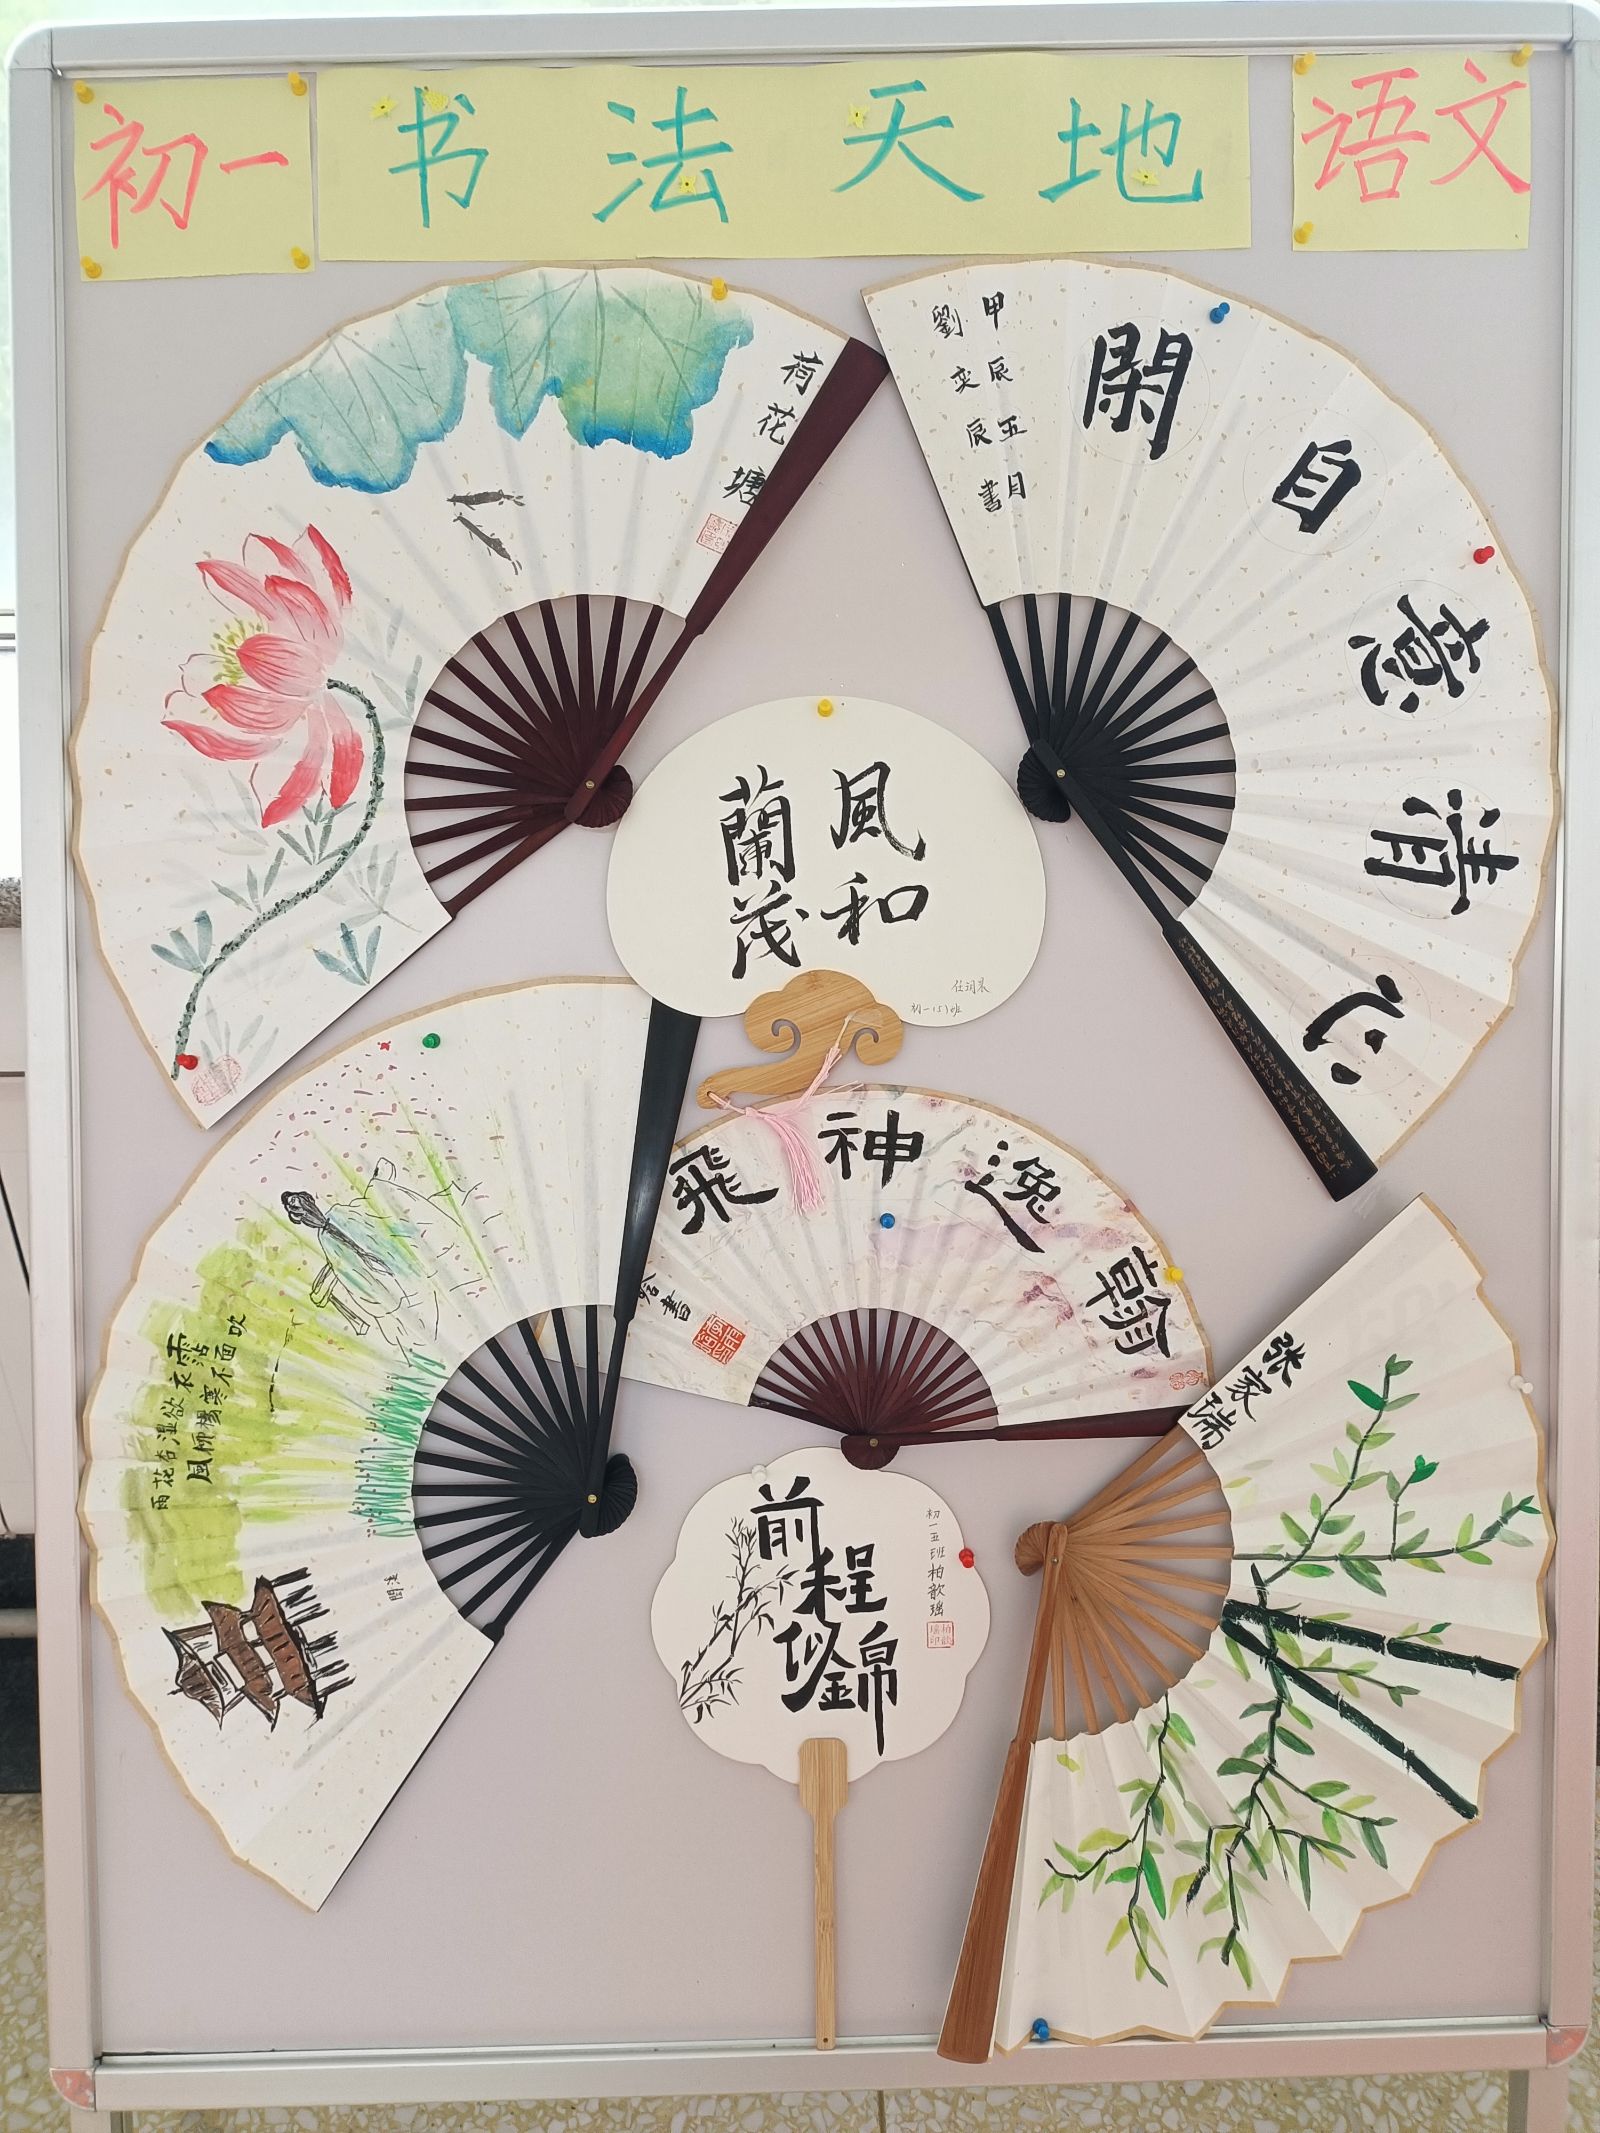 初一
书法天地
语文
荷花塘
閑自意清心
甲辰五月
劉奕辰書
風和
蘭茂
初一(5)班
飛神逸翰
書
沾衣欲湿杏花雨
吹面不寒楊柳風
前程似錦
初一五班柏歆瑶
张家瑞